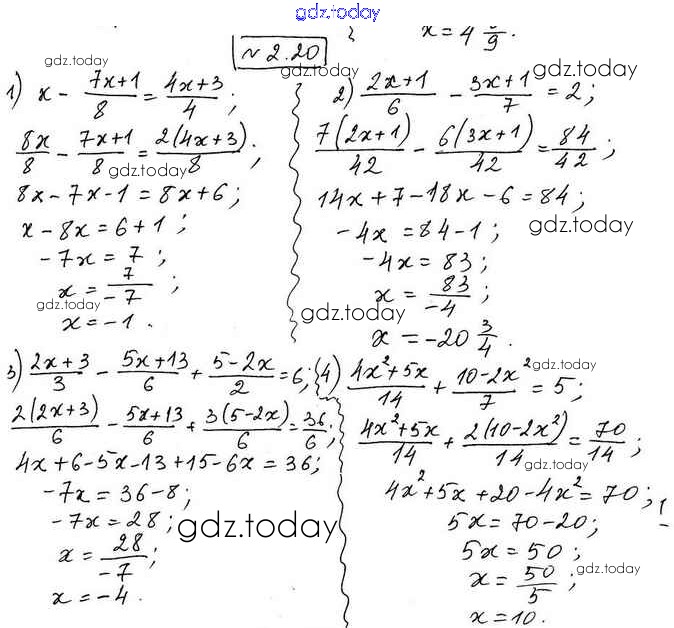 gdz.today
№ 2.20
x = 4 5/9.
gdz.today
gdz.today
1) x - (7x+1)/8 = (4x+3)/4;
8x/8 - (7x+1)/8 = 2(4x+3)/8;
gdz.today
8x - 7x - 1 = 8x + 6;
x - 8x = 6 + 1;
-7x = 7;
x = 7/-7;
gdz.today
x = -1.
2) (2x+1)/6 - (3x+1)/7 = 2;
gdz.today
7(2x+1)/42 - 6(3x+1)/42 = 84/42;
14x + 7 - 18x - 6 = 84;
-4x = 84 - 1;
gdz.today
-4x = 83;
x = 83/-4;
gdz.today
x = -20 3/4.
3) (2x+3)/3 - (5x+13)/6 + (5-2x)/2 = 6;
2(2x+3)/6 - (5x+13)/6 + 3(5-2x)/6 = 36/6;
4x + 6 - 5x - 13 + 15 - 6x = 36;
-7x = 36 - 8;
-7x = 28;
gdz.today
x = 28/-7;
x = -4.
4) (4x²+5x)/14 + (10-2x²)/7 = 5;
gdz.today
(4x²+5x)/14 + 2(10-2x²)/14 = 70/14;
gdz.today
4x² + 5x + 20 - 4x² = 70;
5x = 70 - 20;
5x = 50;
gdz.today
x = 50/5;
x = 10.